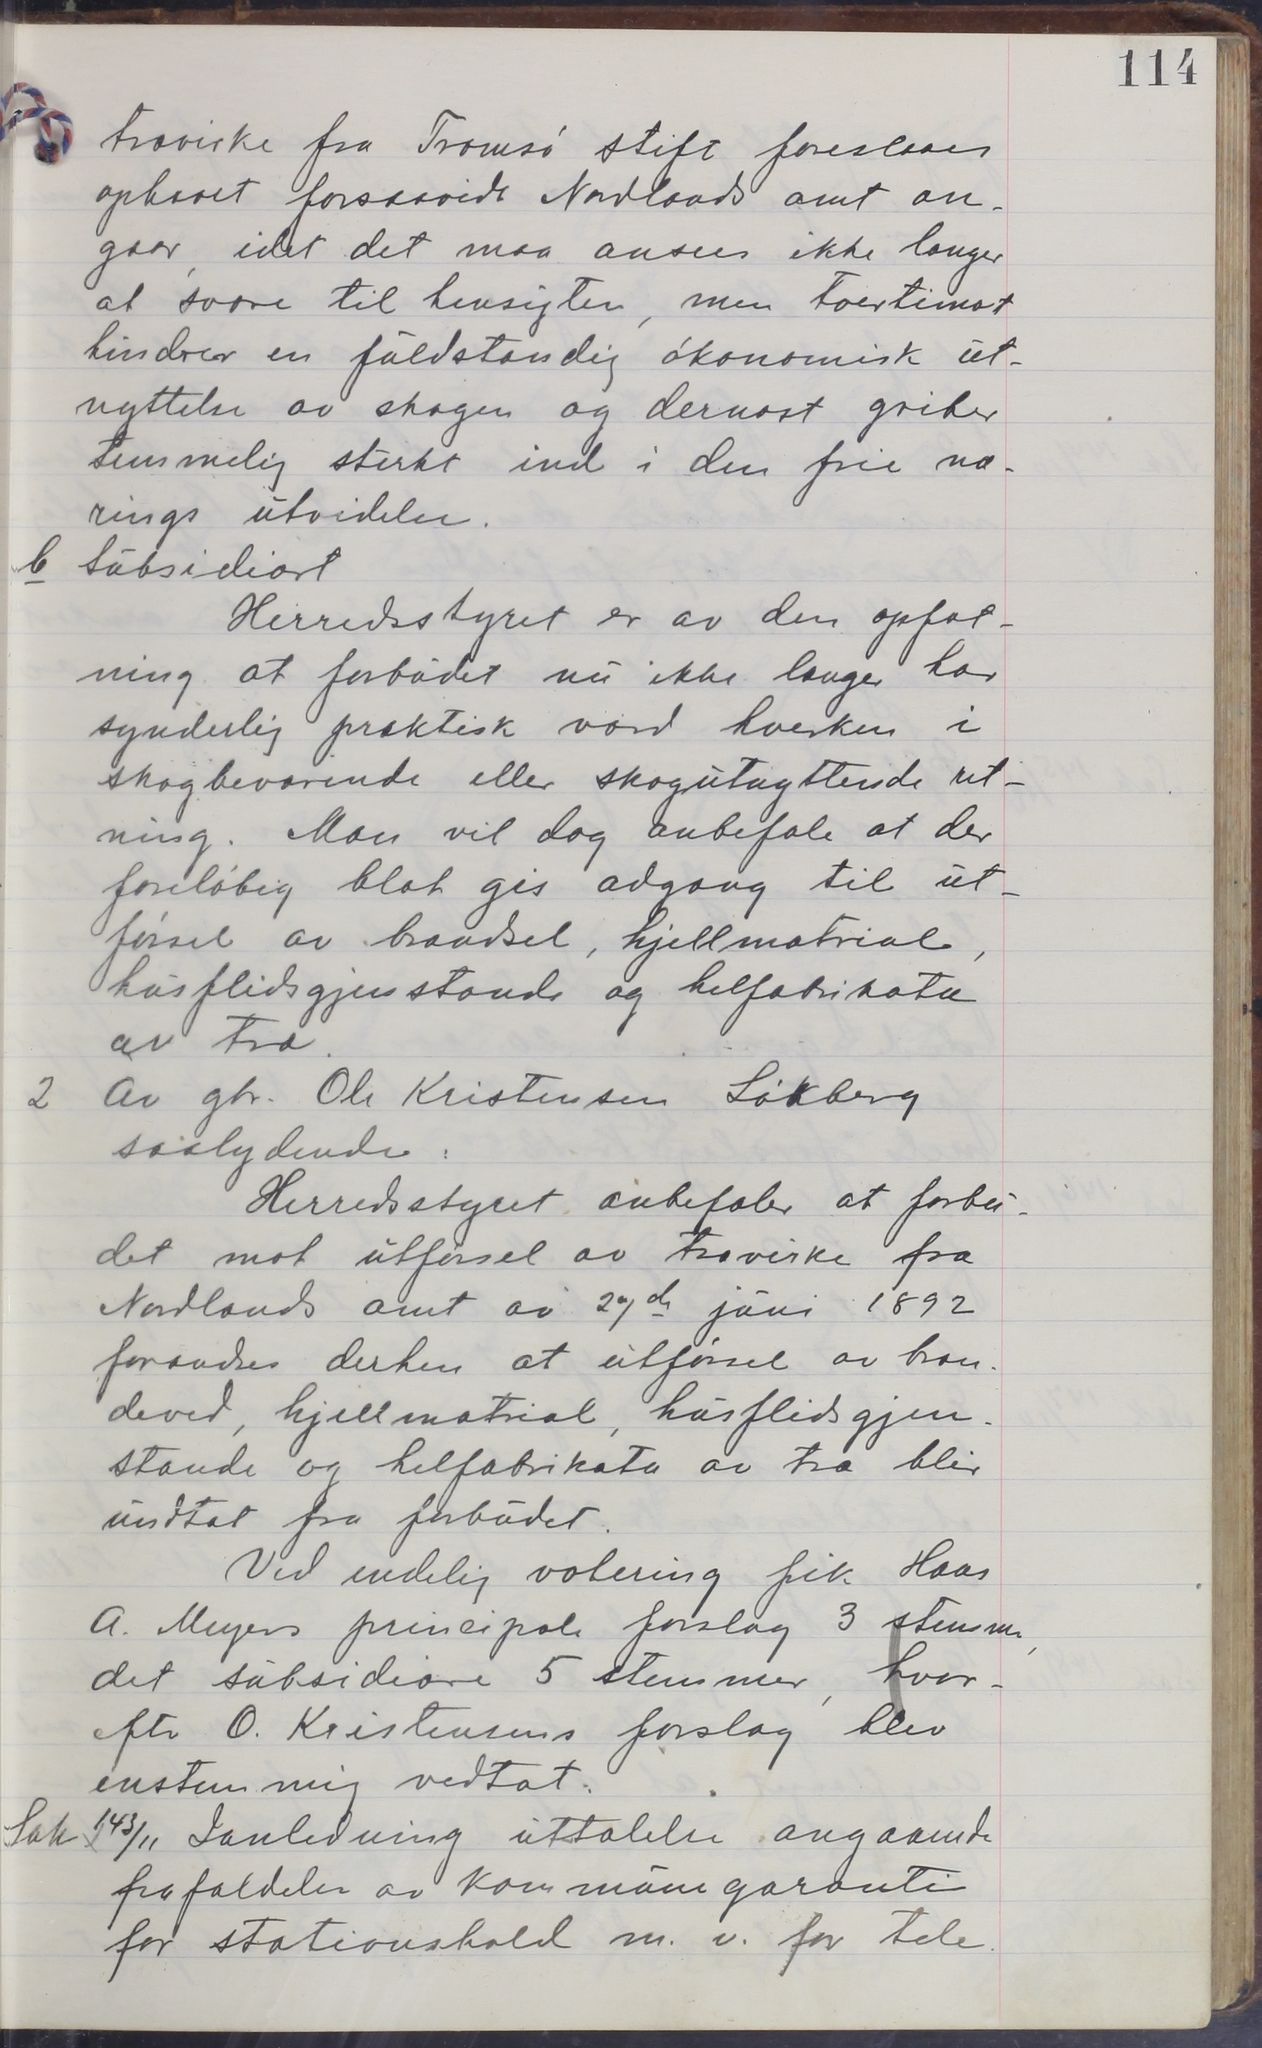 114
trævirke fra Tromsø stift foreslaaes
ophævet forsaavidt Nordlands amt an-
gaar, idet det maa ansees ikke længer
at svare til hensigten, men tvertimot
hindrer en fuldstændig økonomisk ut-
nyttelse av skogen og dernæst griber
temmelig sterkt ind i den frie næ-
rings utvidelse.
b subsidiært
Herredsstyret er av den opfat-
ning at forbudet nu ikke længer har
synderlig praktisk værd hverken i
skogbevarende eller skogutnyttende ret-
ning. Man vil dog anbefale at der
foreløbig blot gis adgang til ut-
førsel av brændsel, hjellmatrial,
husflidsgjenstande og helfabrikata
av træ.
2 Av gbr. Ole Kristensen Løkberg
saalydende:
Herredsstyret anbefaler at forbu-
det mot utførsel av trævirke fra
Nordlands amt av 27de juni 1892
forandres derhen at utførsel av bræn-
deved, hjellmatrial, husflidsgjen-
stande og helfabrikata av træ blir
undtat fra forbudet.
Ved endelig votering fik Hans
A. Meyers principale forslag 3 stemmer,
det subsidiære 5 stemmer, hvor-
efter O. Kristensens forslag blev
enstemmig vedtat.
Sak 143/11 I anledning uttalelse angaaende
frafaldelse av kommunegaranti
for stationshold m. v. for tele